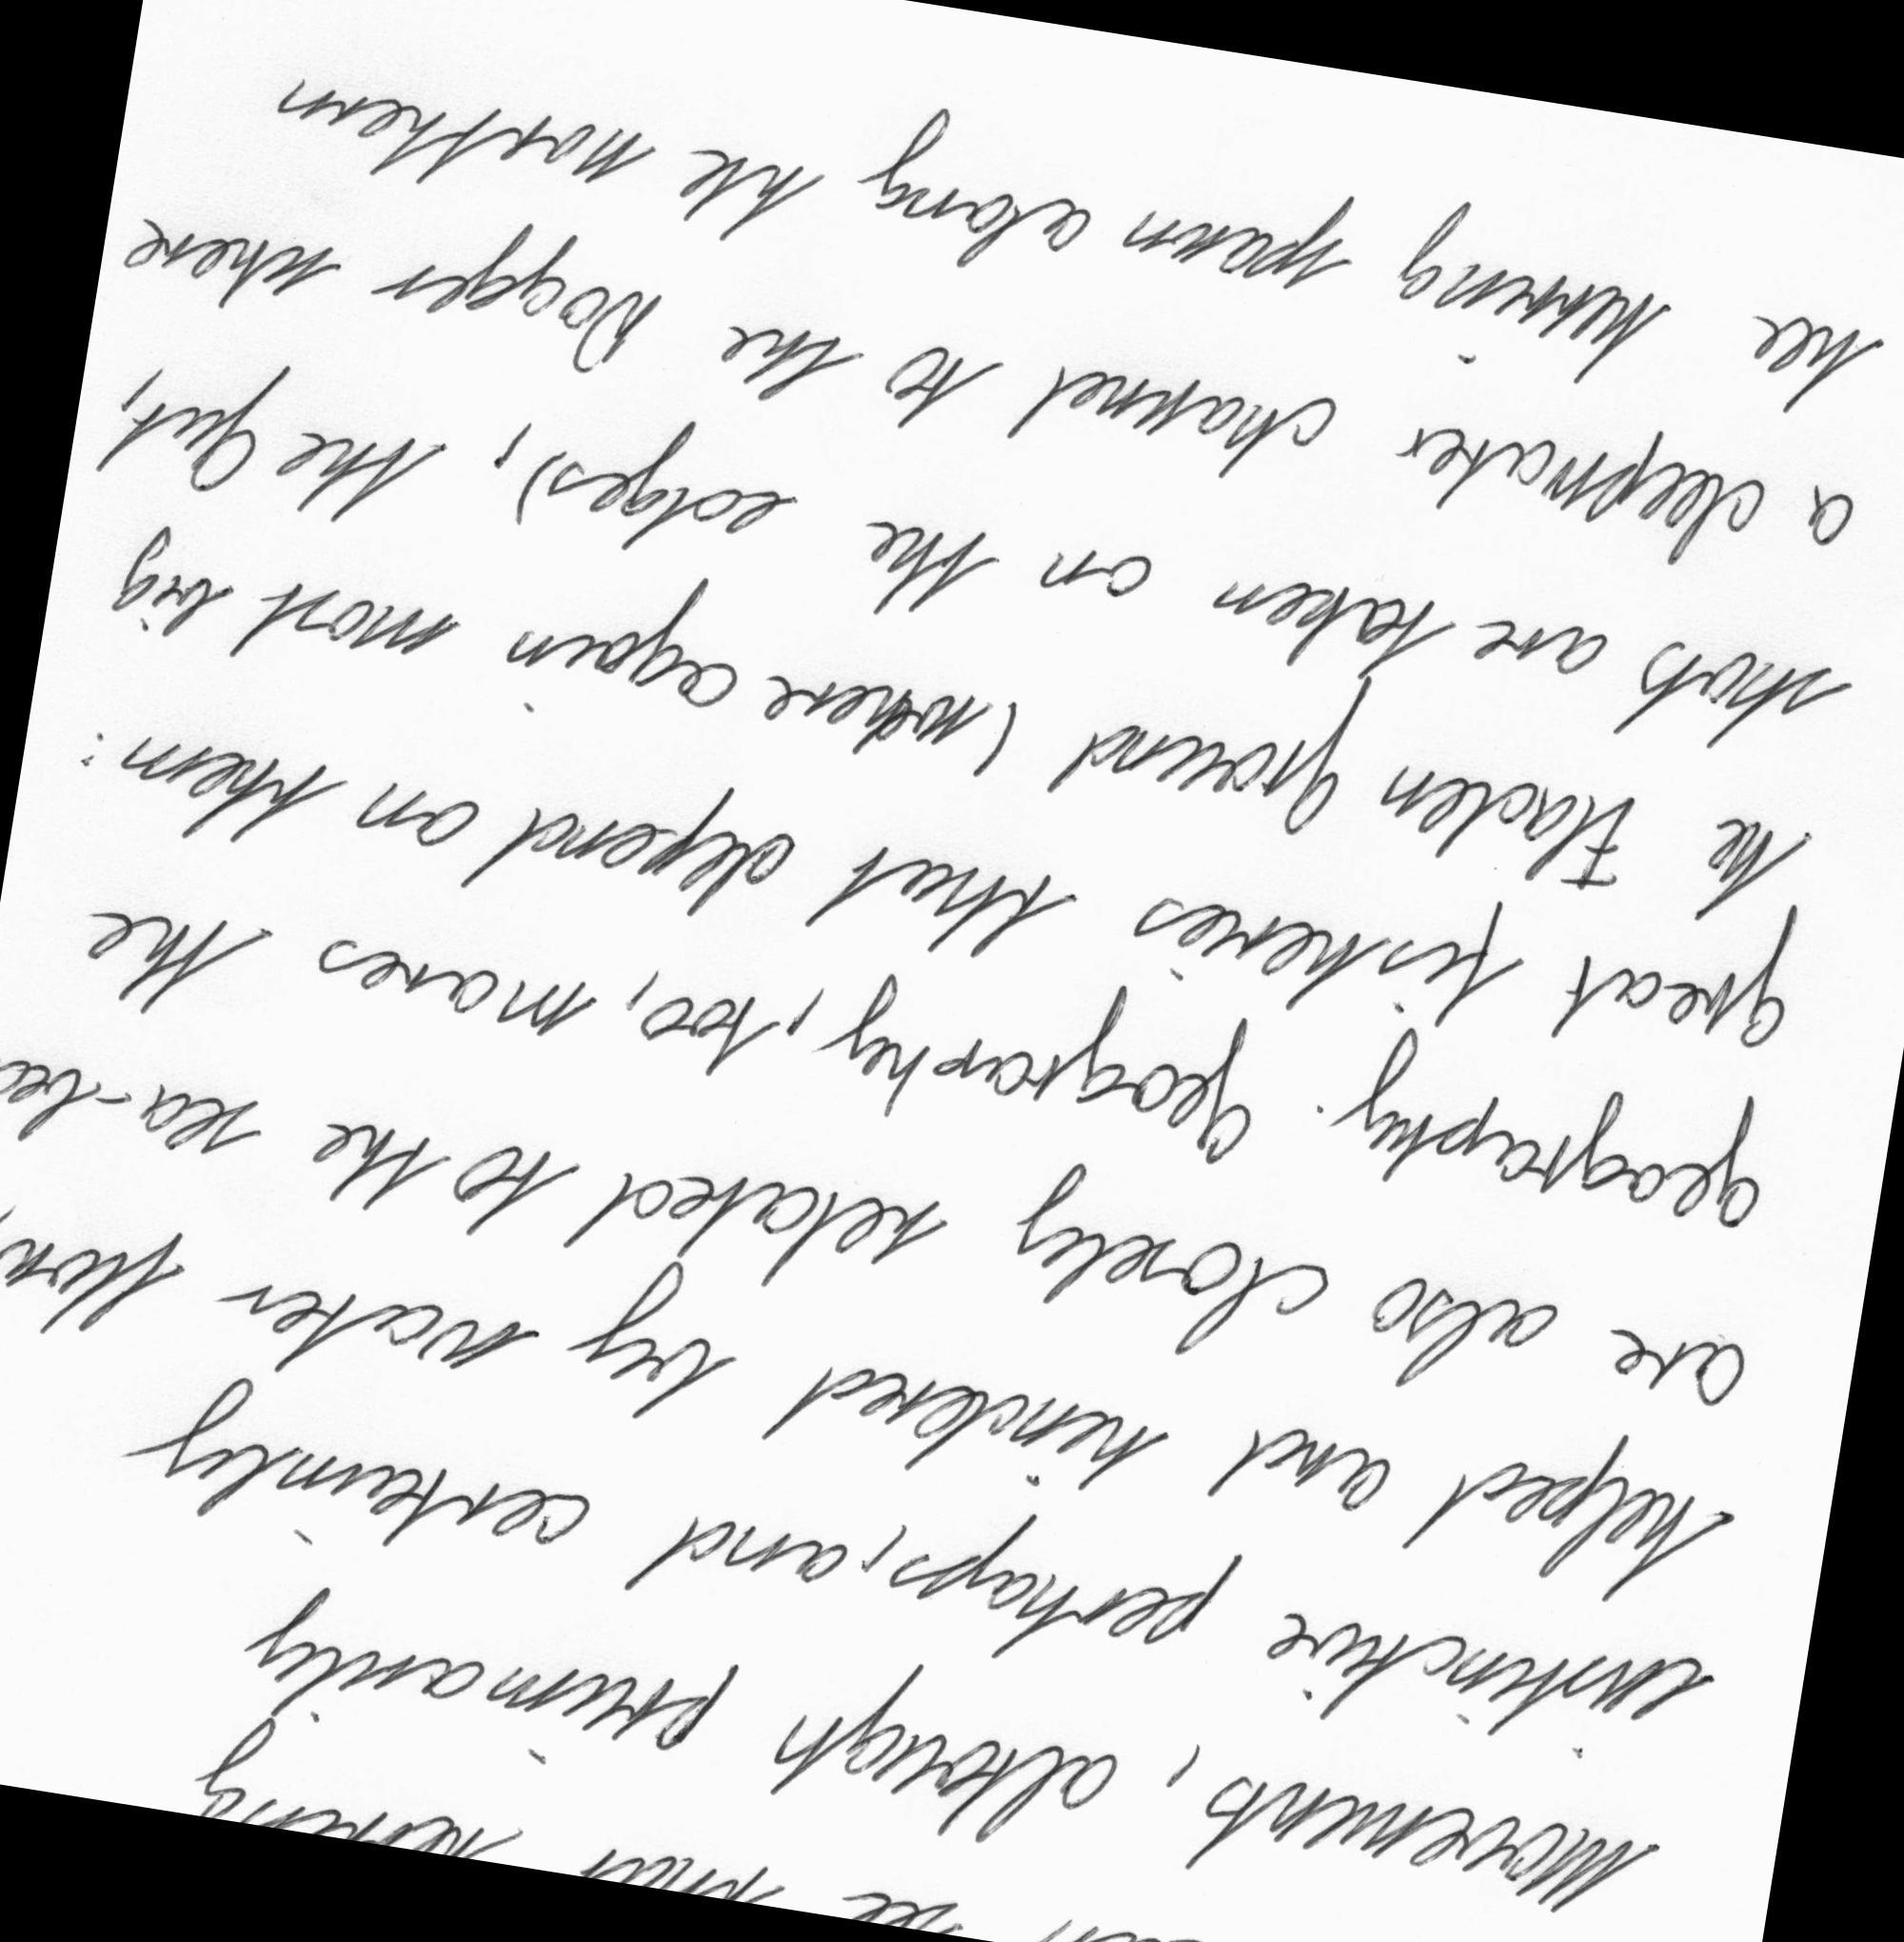 herring
Movements, although primarily
instinctive perhaps, and certainly
helped and hindered by water
are also closely related to the sea-be
geography. Geography, too, moves the
great fisheries that depend on them:
the Fladen Ground (where again most big
shots are taken on the edges), the Gut,
a deepwater channel to the Dogger where
the herring spawn along the northern